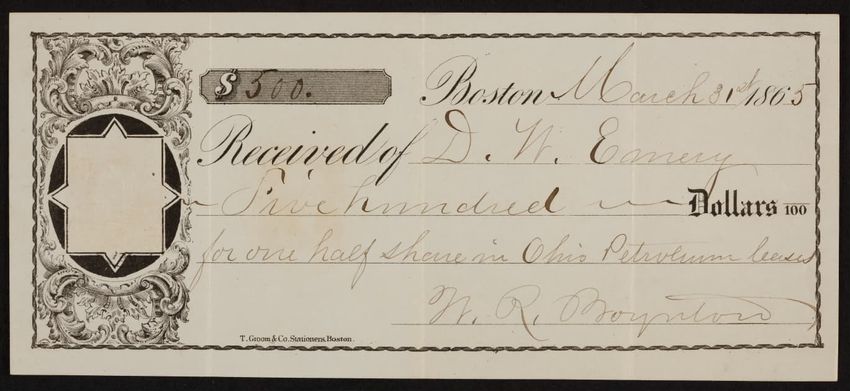 $ 500. Boston March 31st 1865
Received of D. W. Emery
Five hundred Dollars 100
for one half share in Ohio Petroleum leases
W. R. Boynton
T. Groom & Co. Stationers, Boston.